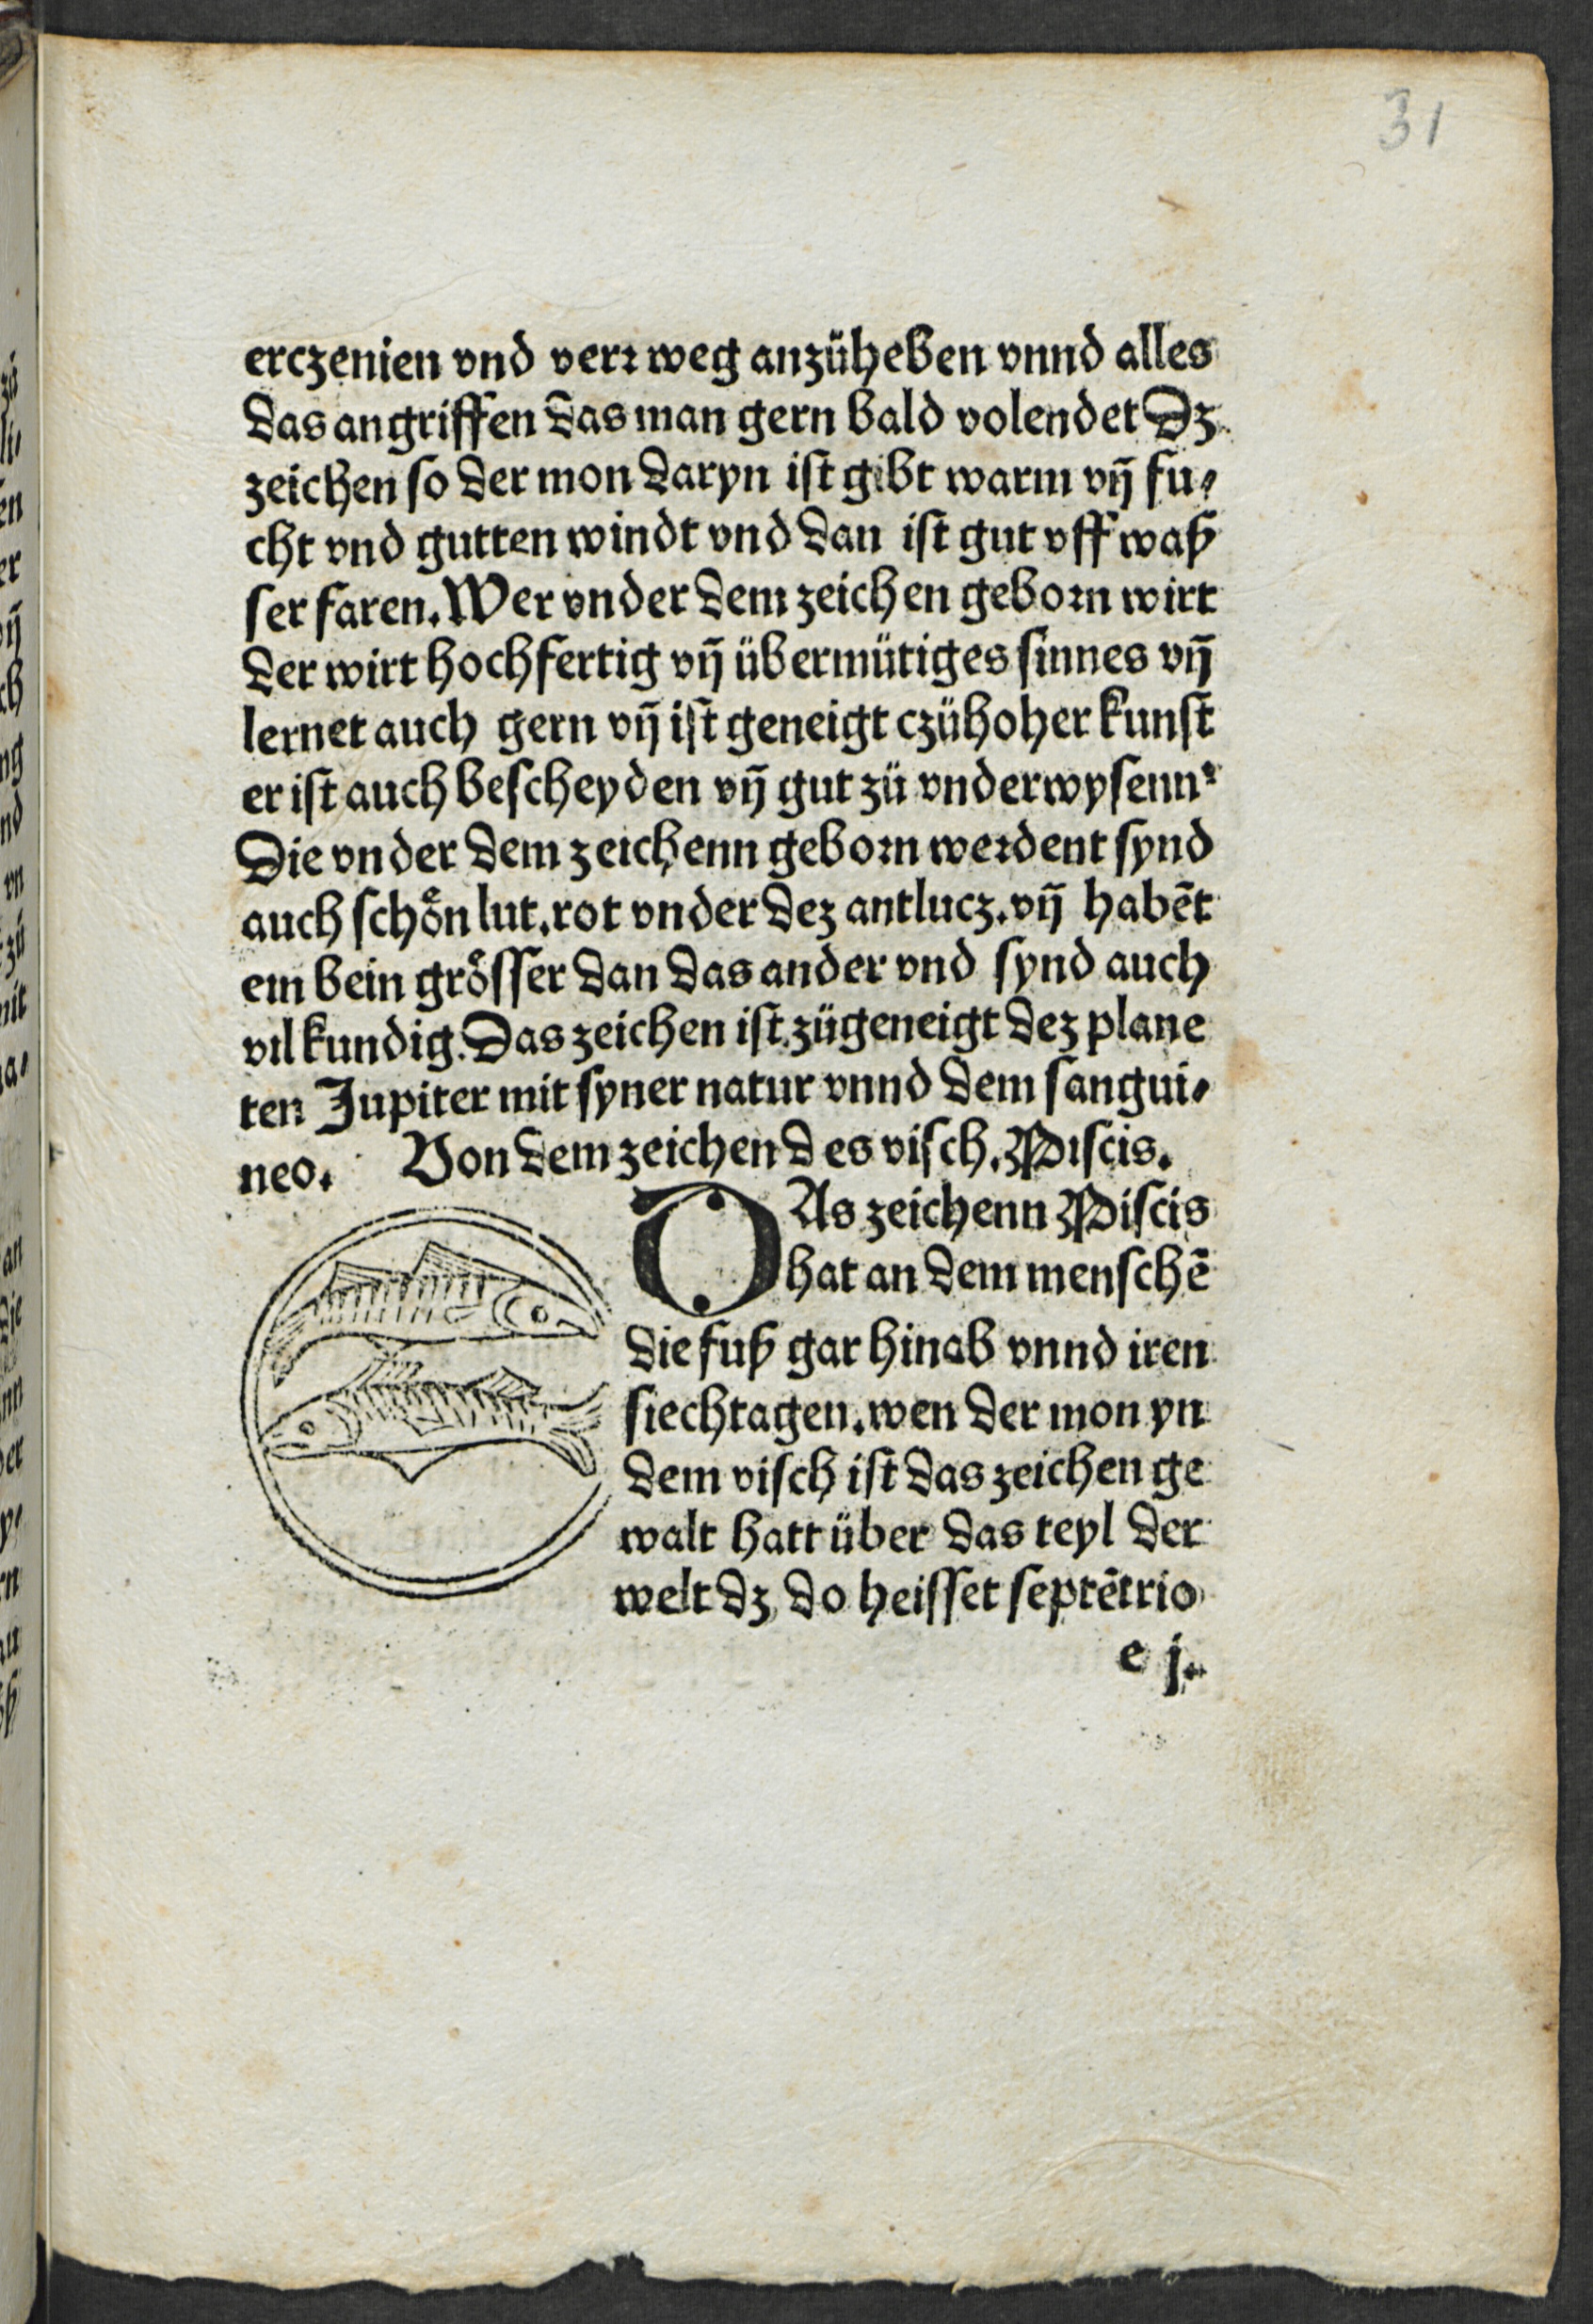 31
erczenien vnd verr weg anzüheben vnnd alles
das angriffen das man gern bald volendet Dz
zeichen so der mon daryn ist gibt warm vn̄ fu⸗
cht vnd gutten windt vnd dan ist gut vff waß
ser faren. Wer vnder dem zeichen geborn wirt
der wirt hochfertig vn̄ übermütiges sinnes vn̄
lernet auch gern vn̄ ist geneigt czühoher kunst
er ist auch bescheyden vn̄ gut zü vnderwysenn.
Die vnder dem zeichenn geborn werdent synd
auch schoͤn lut. rot vnder dez antlucz. vn̄ habēt
ein bein groͤsser dan das ander vnd synd auch
vil kundig. Das zeichen ist zügeneigt dez plane
ten Jupiter mit syner natur vnnd dem sangui⸗
neo. Von dem zeichen des visch. Piscis.
DAs zeichenn Piscis
hat an dem menschē
die fuß gar hinab vnnd iren
siechtagen. wen der mon yn
dem visch ist das zeichen ge
walt hatt über das teyl der
welt dz do heisset septētrio
e j.